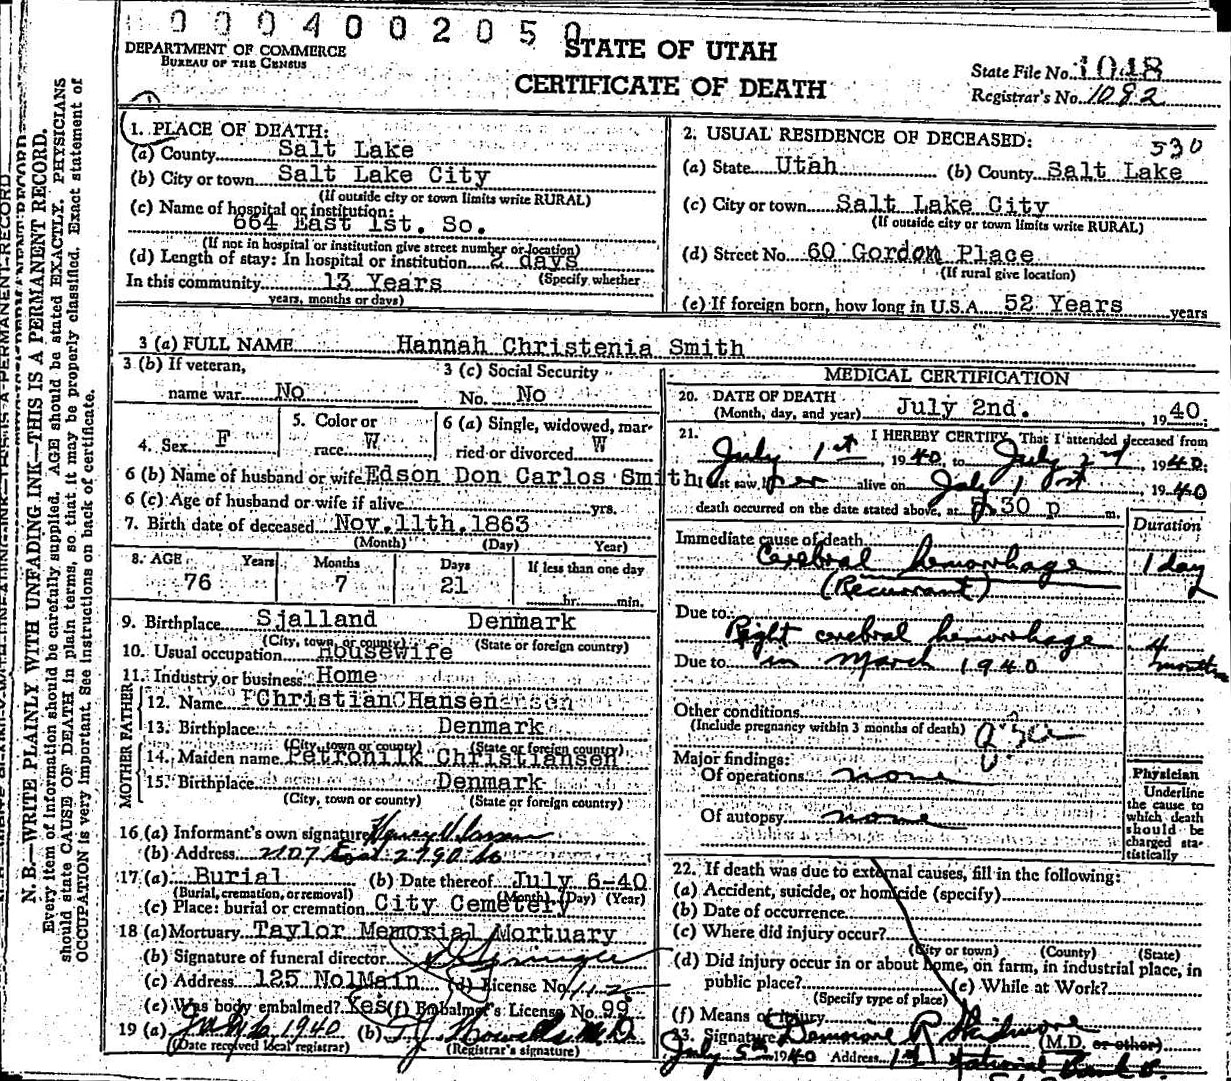 0 0 0 4 0 0 2 0 5 0
DEPARTMENT OF COMMERCE
BUREAU OF THE CENSUS
STATE OF UTAH
CERTIFICATE OF DEATH
State File No. 1048
Registrar's No. 1092
N. B.—WRITE PLAINLY WITH UNFADING INK—THIS IS A PERMANENT RECORD.
Every item of information should be carefully supplied. AGE should be stated EXACTLY. PHYSICIANS
should state CAUSE OF DEATH in plain terms, so that it may be properly classified. Exact statement of
OCCUPATION is very important. See instructions on back of certificate.
1. PLACE OF DEATH:
(a) County Salt Lake
(b) City or town Salt Lake City
(If outside city or town limits write RURAL)
(c) Name of hospital or institution:
664 East 1st. So.
(If not in hospital or institution give street number or location)
(d) Length of stay: In hospital or institution 2 days
In this community 13 Years (Specify whether
years, months or days)
2. USUAL RESIDENCE OF DECEASED: 530
(a) State Utah (b) County Salt Lake
(c) City or town Salt Lake City
(If outside city or town limits write RURAL)
(d) Street No. 60 Gordon Place
(If rural give location)
(e) If foreign born, how long in U.S.A. 52 Years years
3 (a) FULL NAME Hannah Christenia Smith
3 (b) If veteran,
name war No
3 (c) Social Security
No. No
4. Sex F
5. Color or
race W
6 (a) Single, widowed, mar-
ried or divorced W
6 (b) Name of husband or wife Edson Don Carlos Smith
6 (c) Age of husband or wife if alive yrs.
7. Birth date of deceased Nov.11th.1863
(Month) (Day) Year)
8. AGE Years Months Days If less than one day
76 7 21 hr. min.
9. Birthplace Sjalland Denmark
(City, town, or county) (State or foreign country)
10. Usual occupation Housewife
11. Industry or business Home
FATHER
12. Name Christian Hansen
13. Birthplace Denmark
(City, town or county) (State or foreign country)
MOTHER
14. Maiden name Petronilk Christiansen
15. Birthplace Denmark
(City, town or county) (State or foreign country)
16 (a) Informant's own signature
(b) Address 2107 East 2790 So
17 (a) Burial (b) Date thereof July 6-40
(Burial, cremation, or removal) (Month) (Day) (Year)
(c) Place: burial or cremation City Cemetery
18 (a) Mortuary Taylor Memorial Mortuary
(b) Signature of funeral director
(c) Address 125 No1Main (d) License No. 112
(e) Was body embalmed? Yes (f) Embalmer's License No. 99
19 (a) July 6 1940 (b) M.D.
(Date received local registrar) (Registrar's signature)
MEDICAL CERTIFICATION
20. DATE OF DEATH
(Month, day, and year) July 2nd. 1940.
21. I HEREBY CERTIFY, That I attended deceased from
July 1st, 1940 to July 2nd, 1940;
I last saw her alive on July 1st, 1940
death occurred on the date stated above, at 7.30 p m.
Duration
Immediate cause of death
Cerebral hemorrhage 1 day
(Recurrant)
Due to
Right cerebral hemorrhage 4
Due to in March 1940 months
Other conditions
(Include pregnancy within 3 months of death)
Major findings:
Of operations none
Of autopsy none
Physician
Underline
the cause to
which death
should be
charged sta-
tistically
22. If death was due to external causes, fill in the following:
(a) Accident, suicide, or homicide (specify)
(b) Date of occurrence
(c) Where did injury occur?
(City or town) (County) (State)
(d) Did injury occur in or about home, on farm, in industrial place, in
public place? (e) While at Work?
(Specify type of place)
(f) Means of injury
23. Signature Skidmore (M.D. or other)
July 5th 1940 Address 1st National Bank